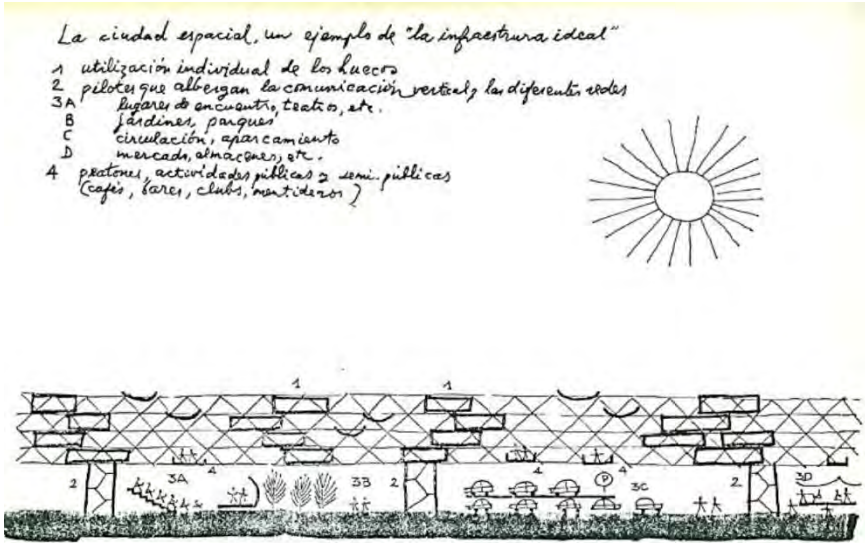 La ciudad espacial, un ejemplo de "la infraestrura ideal"
1 utilización individual de los huecos
2 pilotes que albergan la comunicación vertical y las diferentes redes
3A lugares de encuentro, teatros, etc.
B jardines, parques
C circulación, aparcamiento
D mercado, almacenes, etc.
4 peatones, actividades públicas y semi-públicas
(cafés, bares, clubs, mentideros)
1 1
4 4 4
2 3A 3B 2 P 3C 2 3D